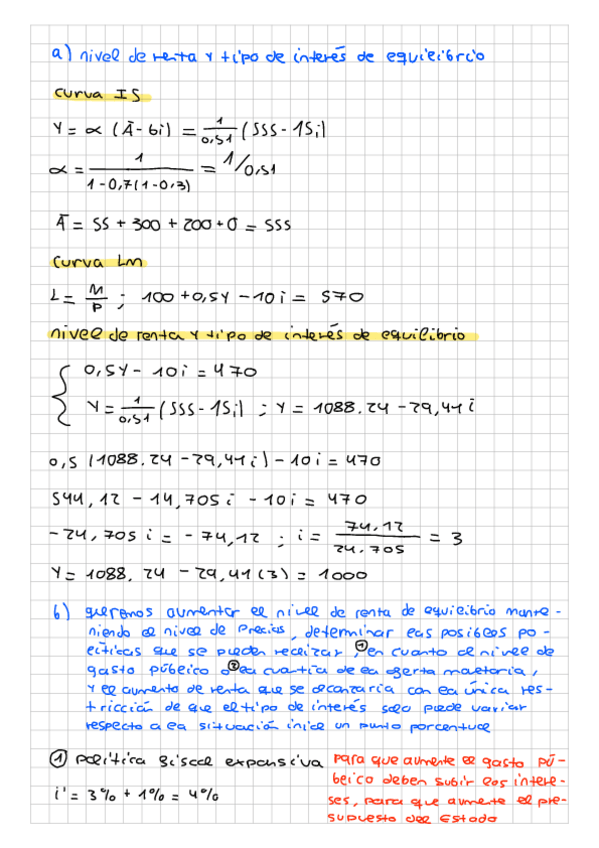 a) nivel de renta y tipo de interés de equilibrio
curva IS
Y = α (Ā - bi) = 1/0,51 (555 - 15i)
α = 1/(1 - 0,7(1 - 0,3)) = 1/0,51
Ā = 55 + 300 + 200 + 0 = 555
curva LM
L = M/P ; 100 + 0,5Y - 10i = 570
nivel de renta y tipo de interés de equilibrio
0,5Y - 10i = 470
Y = 1/0,51 (555 - 15i) ; Y = 1088.24 - 29,41i
0,5 (1088.24 - 29,41i) - 10i = 470
544,12 - 14,705i - 10i = 470
-24,705i = -74,12 ; i = 74,12/24.705 = 3
Y = 1088,24 - 29,41(3) = 1000
b) queremos aumentar el nivel de renta de equilibrio mante-
niendo el nivel de precios, determinar las posibles po-
líticas que se pueden realizar, ① en cuanto al nivel de
gasto público o ② la cuantía de la oferta monetaria,
y el aumento de renta que se alcanzaría con la única res-
tricción de que el tipo de interés solo puede variar
respecto a la situación inicial un punto porcentual
① política fiscal expansiva
i' = 3% + 1% = 4%
para que aumente el gasto pú-
blico deben subir los intere-
ses, para que aumente el pre-
supuesto del Estado